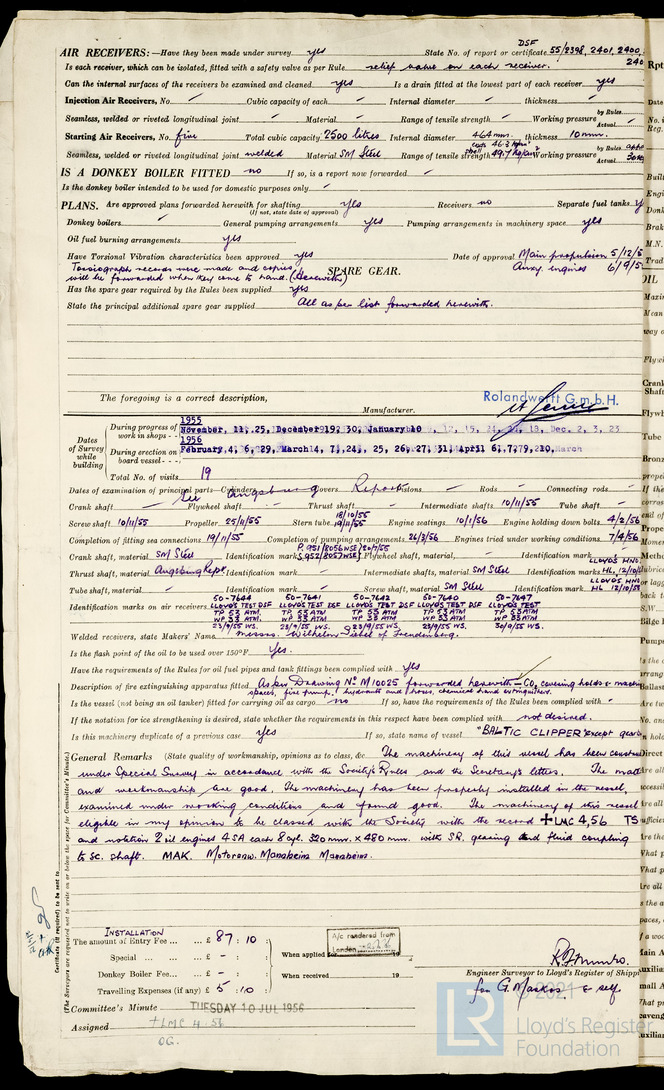 DSF
AIR RECEIVERS:—Have they been made under survey yes State No. of report or certificate 55/2398, 2401, 2400,
Is each receiver, which can be isolated, fitted with a safety valve as per Rule relief valve on each receiver.
Can the internal surfaces of the receivers be examined and cleaned yes Is a drain fitted at the lowest part of each receiver yes
Injection Air Receivers, No. Cubic capacity of each Internal diameter thickness
Seamless, welded or riveted longitudinal joint Material Range of tensile strength Working pressure by Rules Actual
Starting Air Receivers, No. five Total cubic capacity 2500 litres Internal diameter 464 mm. thickness 10 mm.
Seamless, welded or riveted longitudinal joint welded Material SM Steel Range of tensile strength Working pressure by Rules Actual
IS A DONKEY BOILER FITTED no If so, is a report now forwarded
Is the donkey boiler intended to be used for domestic purposes only
PLANS. Are approved plans forwarded herewith for shafting yes Receivers no Separate fuel tanks
(If not, state date of approval)
Donkey boilers General pumping arrangements yes Pumping arrangements in machinery space yes
Oil fuel burning arrangements yes
Have Torsional Vibration characteristics been approved yes Date of approval Main propulsion 5/12/5
Torsiograph records were made and copies Auxy engines 6/9/5
will be forwarded when they come to hand. (Herewith)
SPARE GEAR.
Has the spare gear required by the Rules been supplied yes
State the principal additional spare gear supplied All as per list forwarded herewith.
Rolandwerft G.m.b.H.
The foregoing is a correct description,
Manufacturer.
Dates of Survey while building
During progress of work in shops - -
1955
November, 11, 25, December 19, 30, January 10
1956
During erection on board vessel - - -
February, 4, 6, 29, March 14, 7, 24, 25, 26, 27, 31, April 6, 7, 9, 10, March
Total No. of visits 19
Dates of examination of principal parts—Cylinders Covers Pistons Rods Connecting rods
See Augsburg Report
Crank shaft Flywheel shaft Thrust shaft Intermediate shafts 10/11/55 Tube shaft
Screw shaft 10/11/55 Propeller 25/11/55 Stern tube 18/10/55 19/11/55 Engine seatings 10/1/56 Engine holding down bolts 4/2/56
Completion of fitting sea connections 19/11/55 Completion of pumping arrangements 26/3/56 Engines tried under working conditions 7/4/56
Crank shaft, material SM Steel Identification mark Flywheel shaft, material, Identification mark
Thrust shaft, material Augsburg Rept Identification mark Intermediate shafts, material SM Steel Identification marks LLOYDS HNO. HL, 12/10/
Tube shaft, material Identification mark Screw shaft, material SM Steel Identification mark LLOYDS HNO. HL 12/10/5
50-7644 50-7641 50-7642 50-7640 50-7647
Identification marks on air receivers LLOYDS TEST DSF LLOYDS TEST DSF LLOYDS TEST DSF LLOYDS TEST DSF LLOYDS TEST
TP 53 ATM TP 53 ATM TP 53 ATM TP 53 ATM TP 53 ATM
WP 33 ATM WP 33 ATM WP 33 ATM WP 33 ATM WP 33 ATM
23/9/55 WS. 23/9/55 WS. 23/9/55 WS. 23/9/55 WS. 30/9/55 WS.
Welded receivers, state Makers' Name Messrs. Wilhelm
Is the flash point of the oil to be used over 150°F. Yes.
Have the requirements of the Rules for oil fuel pipes and tank fittings been complied with yes
Description of fire extinguishing apparatus fitted As per Drawing No M10025 forwarded herewith – CO2 covering holds &
spaces, fire pump, hydrants and hoses, chemical hand extinguishers.
Is the vessel (not being an oil tanker) fitted for carrying oil as cargo no If so, have the requirements of the Rules been complied with
If the notation for ice strengthening is desired, state whether the requirements in this respect have been complied with not desired.
Is this machinery duplicate of a previous case yes If so, state name of vessel "BALTIC CLIPPER" except
General Remarks (State quality of workmanship, opinions as to class, &c. The machinery of this vessel has been
under Special Survey in accordance with the Society's Rules and the Secretary's letters. The
and workmanship are good. The machinery has been properly installed in the vessel,
examined under working conditions and found good. The machinery of this vessel
eligible in my opinion to be classed with the Society with the record +LMC 4,56 TS
and notation 2 oil engines 4SA each 8 cyl. 320 mm. × 480 mm. with SR gearing and fluid coupling
to sc. shaft. MAK. Motorenw. Mannheim Mannheim.
(The Surveyors are requested not to write on or below the space for Committee's Minute.)
Certificate (if required) to be sent to
INSTALLATION
The amount of Entry Fee ... £ 87 : 10
Special ... £ - :
Donkey Boiler Fee ... £ - :
Travelling Expenses (if any) £ 5 : 10
A/c rendered from
London
When applied for 19
When received 19
R. J. Munro.
Engineer Surveyor to Lloyd's Register of Shipp
for G. Markos & self
Committee's Minute TUESDAY 10 JUL 1956
Assigned +LMC 4.56
OG.
© 2021
LR
Lloyd's Register
Foundation